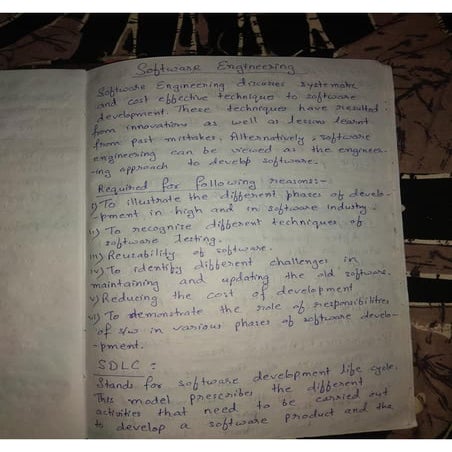 Software Engineering
Software Engineering discusses systematic
and cost effective technique to software
development. These techniques have resulted
from innovations as well as lessons learnt
from past mistakes. Alternatively, software
engineering can be viewed as the enginee-
-ing approach to develop software.
Required for following reasons:-
i) To illustrate the different phases of develo-
-pment in high and in software industry.
ii) To recognize different techniques of
software testing.
iii) Reusability of software.
iv) To identify different challenges in
maintaining and updating the old software.
v) Reducing the cost of development
vi) To demonstrate the role of responsibilities
of s/w in various phases of software develo-
-pment.
SDLC :
Stands for software development life cycle.
This model prescribes the different
activities that need to be carried out
to develop a software product and the